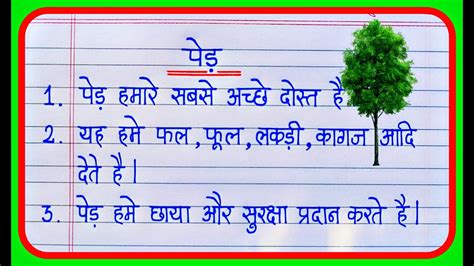 पेड़
1. पेड़ हमारे सबसे अच्छे दोस्त है
2. यह हमे फल, फूल, लकड़ी, कागज आदि
देते है।
3. पेड़ हमे छाया और सुरक्षा प्रदान करते है।